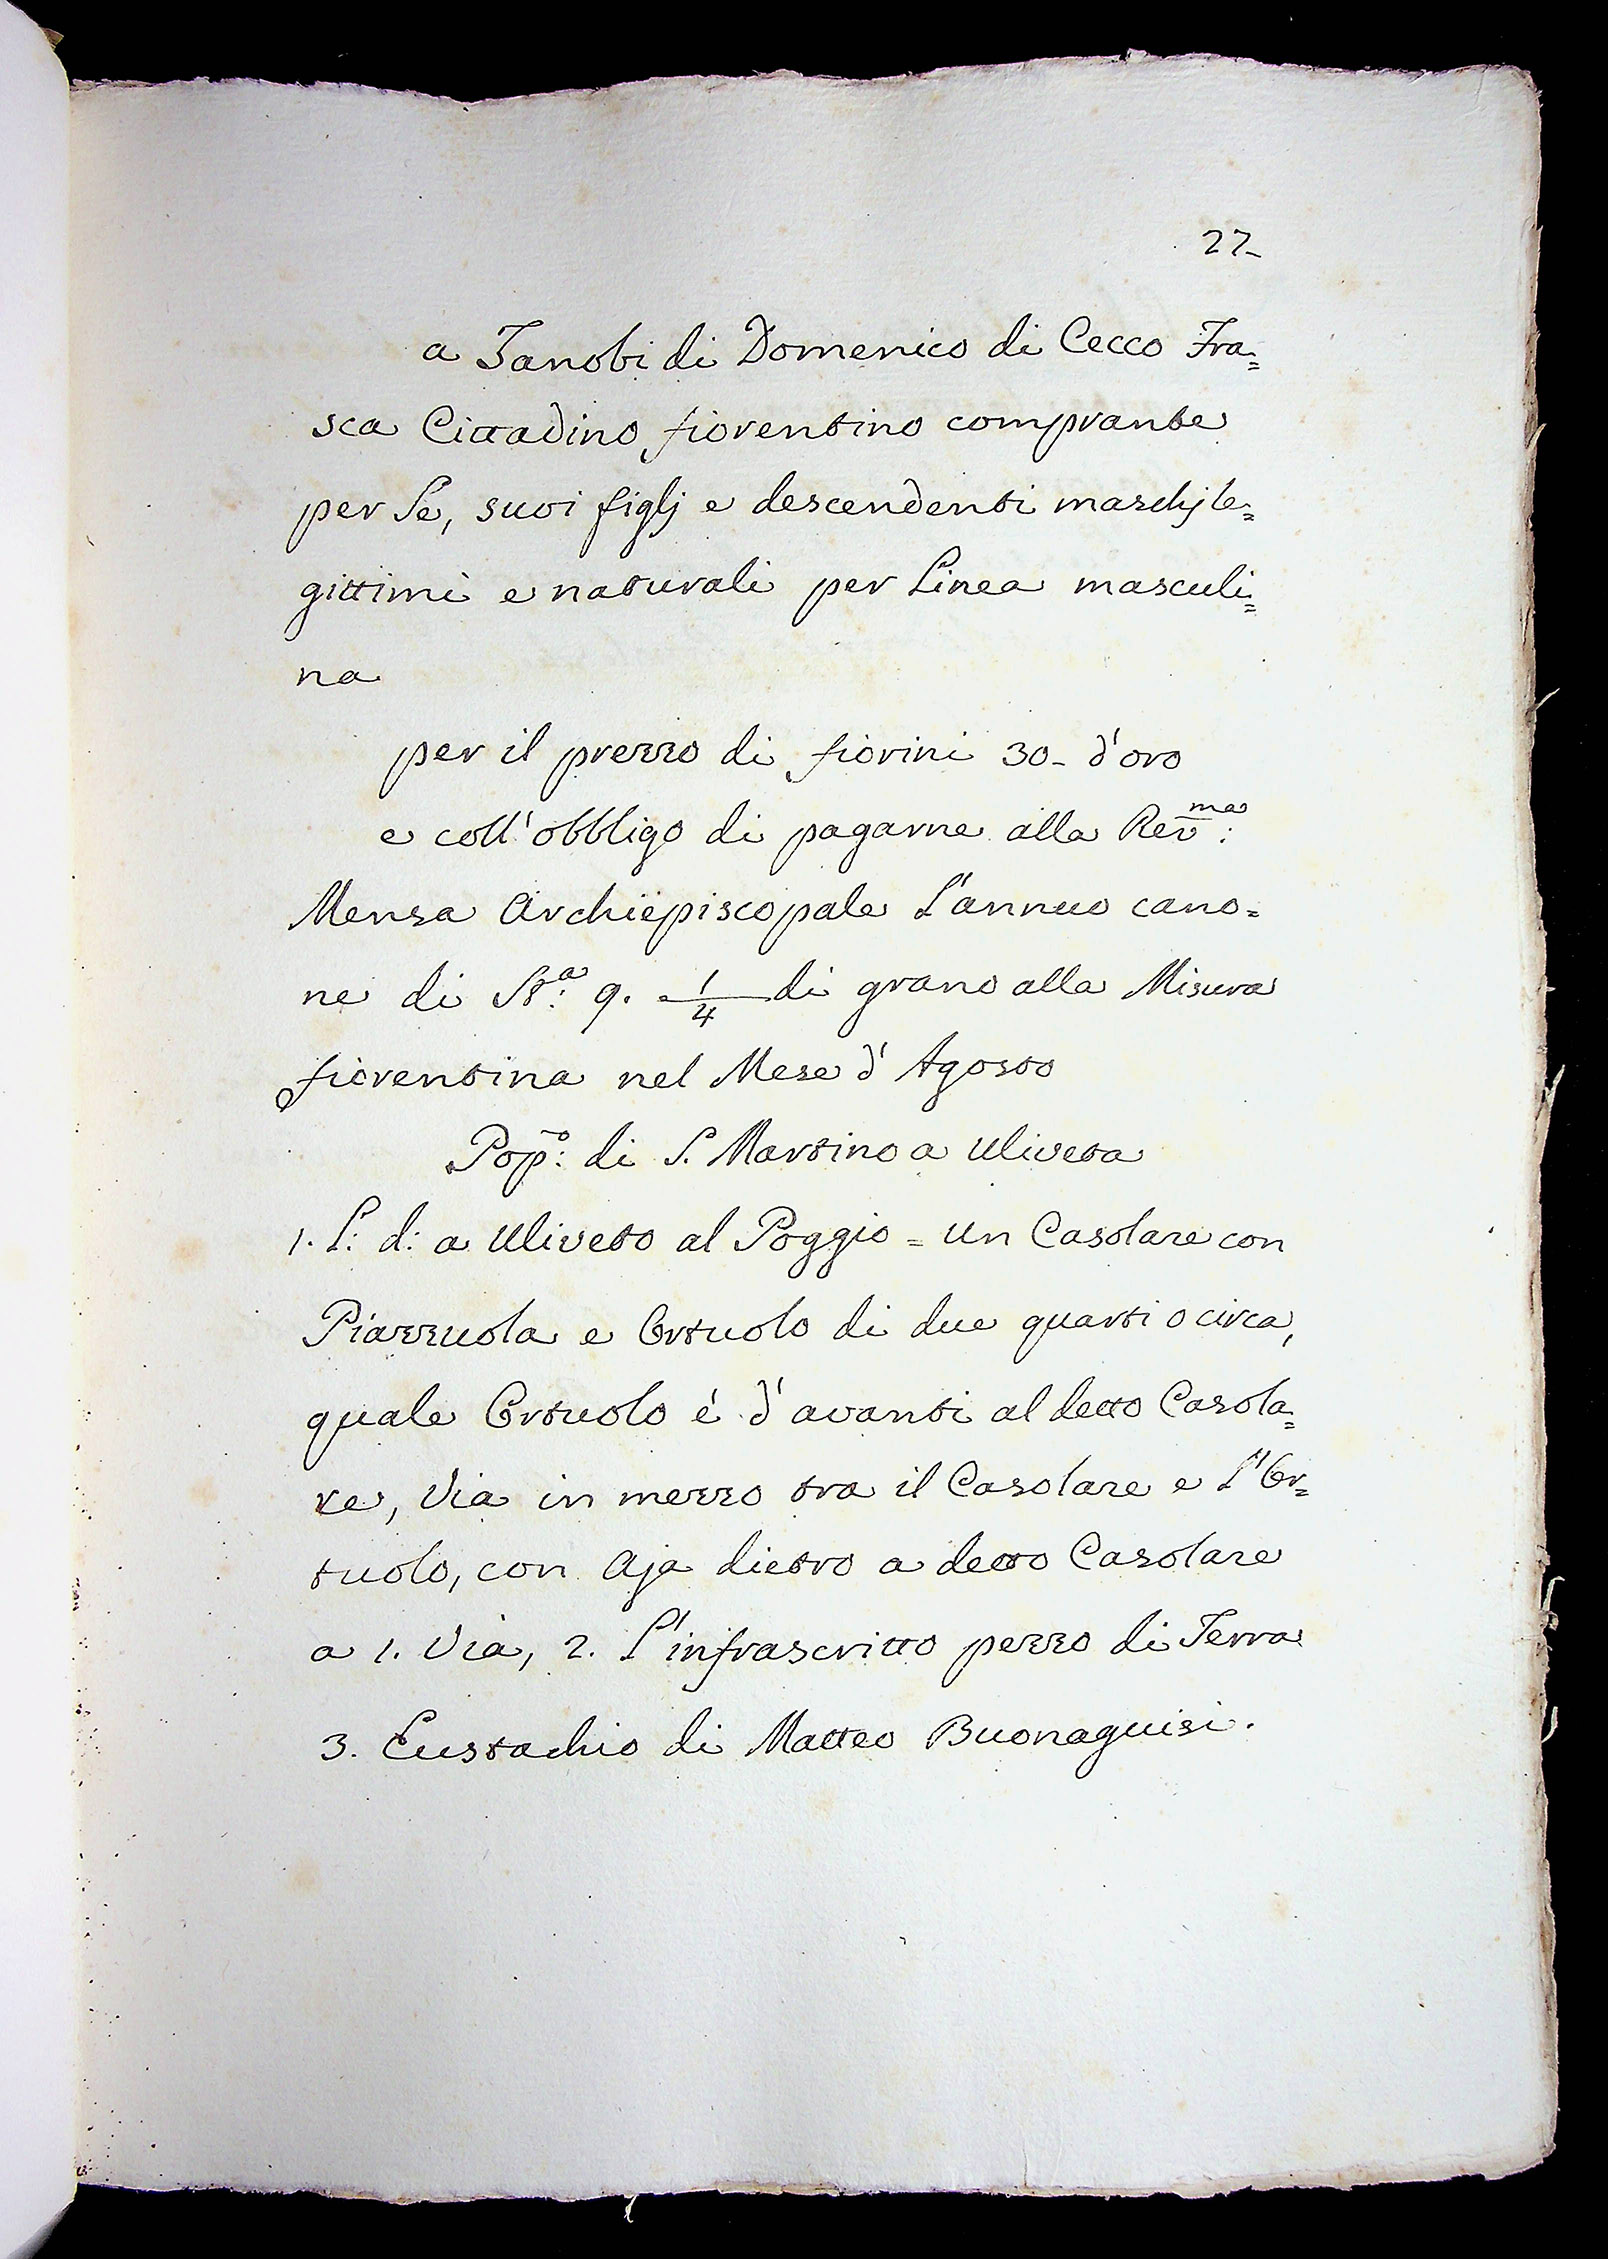 27_
a Zanobi di Domenico di Cecco Fra=
sca Cittadino fiorentino comprante
per Se, suoi figlj e descendenti maschj le=
gittimi e naturali per Linea masculi=
na
per il prezzo di fiorini 30_ d'oro
e coll'obbligo di pagarne alla Rev:ma
Mensa Archiepiscopale L'annuo cano=
ne di St:a 9. 1/4 di grano alla Misura
fiorentina nel Mese d'Agosto
Pop:o di S. Martino a Uliveta
1. L: d: a Uliveto al Poggio = Un Casolare con
Piazzuola e Ortuolo di due quarti o circa,
quale Ortuolo é d'avanti al detto Casola=
re, Via in mezzo tra il Casolare e L'Or=
tuolo, con Aja dietro a detto Casolare
a 1. Via, 2. L'infrascritto pezzo di Terra
3. Eustachio di Matteo Buonaguisi.